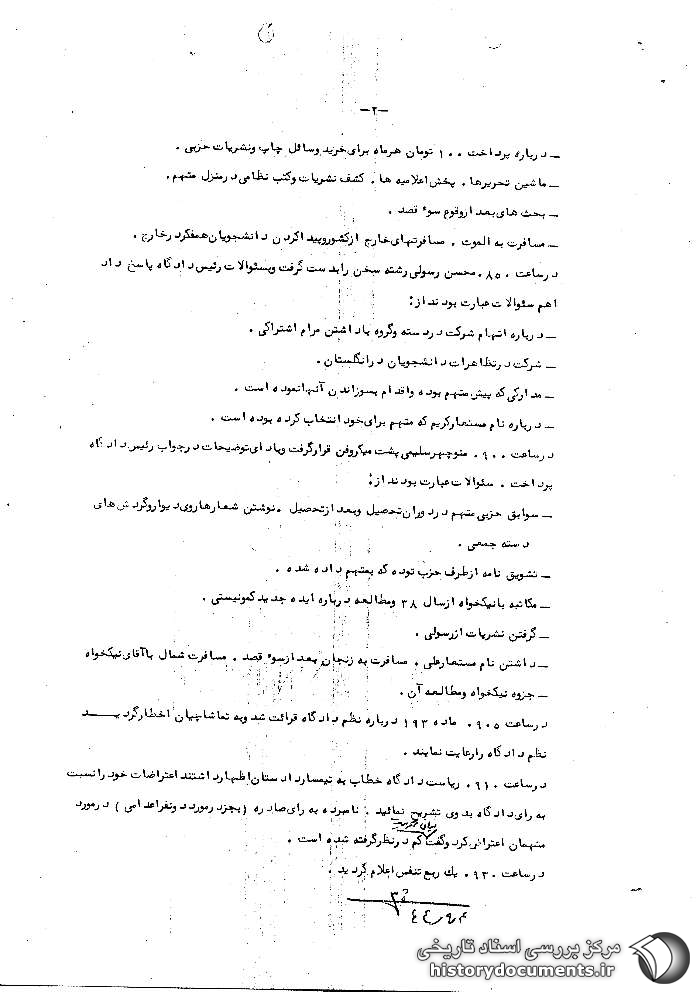 -۲-
ـ درباره پرداخت ۱۰۰ تومان هرماه برای خرید وسائل چاپ ونشریات حزبی .
ـ ماشین تحریرها . پخش اعلامیه ها . کشف نشریات وکتب نظامی درمنزل متهم .
ـ بحث های بعد ازوقوع سوء قصد .
ـ مسافرت به الموت . مسافرتهای خارج ازکشوروپیداکردن دانشجویان همفکردرخارج .
درساعت ۰۸۵۰ محسن رسولی رشته سخن رابدست گرفت وبسئوالات رئیس دادگاه پاسخ داد
اهم سئوالات عبارت بودنداز:
ـ درباره اتهام شرکت دردسته وگروه باداشتن مرام اشتراکی .
ـ شرکت درتظاهرات دانشجویان درانگلستان .
ـ مدارکی که پیش متهم بوده واقدام بسوزاندن آنهانموده است .
ـ درباره نام مستعارکریم که متهم برای خود انتخاب کرده بوده است .
درساعت ۰۹۰۰ منوچهرسلیمی پشت میکروفن قرارگرفت وبادای توضیحات درجواب رئیس دادگاه
پرداخت . سئوالات عبارت بودنداز:
ـ سوابق حزبی متهم دردوران تحصیل وبعد ازتحصیل . نوشتن شعارهاروی دیواروگردش های
دسته جمعی .
ـ تشویق نامه ازطرف حزب توده که بمتهم داده شده .
ـ مکاتبه بانیکخواه ازسال ۳۸ ومطالعه درباره ایده جدیدکمونیستی .
ـ گرفتن نشریات ازرسولی .
ـ داشتن نام مستعارعلی . مسافرت به زنجان بعد ازسوء قصد . مسافرت شمال باآقای نیکخواه
ـ جزوه نیکخواه ومطالعه آن .
درساعت ۰۹۰۵ ماده ۱۹۳ درباره نظم دادگاه قرائت شد وبه تماشاچیان اخطارگردیــــد
نظم دادگاه رارعایت نمایند .
درساعت ۰۹۱۰ ریاست دادگاه خطاب به تیمساردادستان اظهارداشتند اعتراضات خودرانسبت
به رای دادگاه بدوی تشریح نمائید . نامبرده به رای صادره (بجزدرمورددونفراعدامی) درمورد
متهمان اعتراض کرد وگفت کم درنظرگرفته شده است .
درساعت ۰۹۳۰ یک ربع تنفس اعلام گردید .
مرکز بررسی اسناد تاریخی
historydocuments.ir